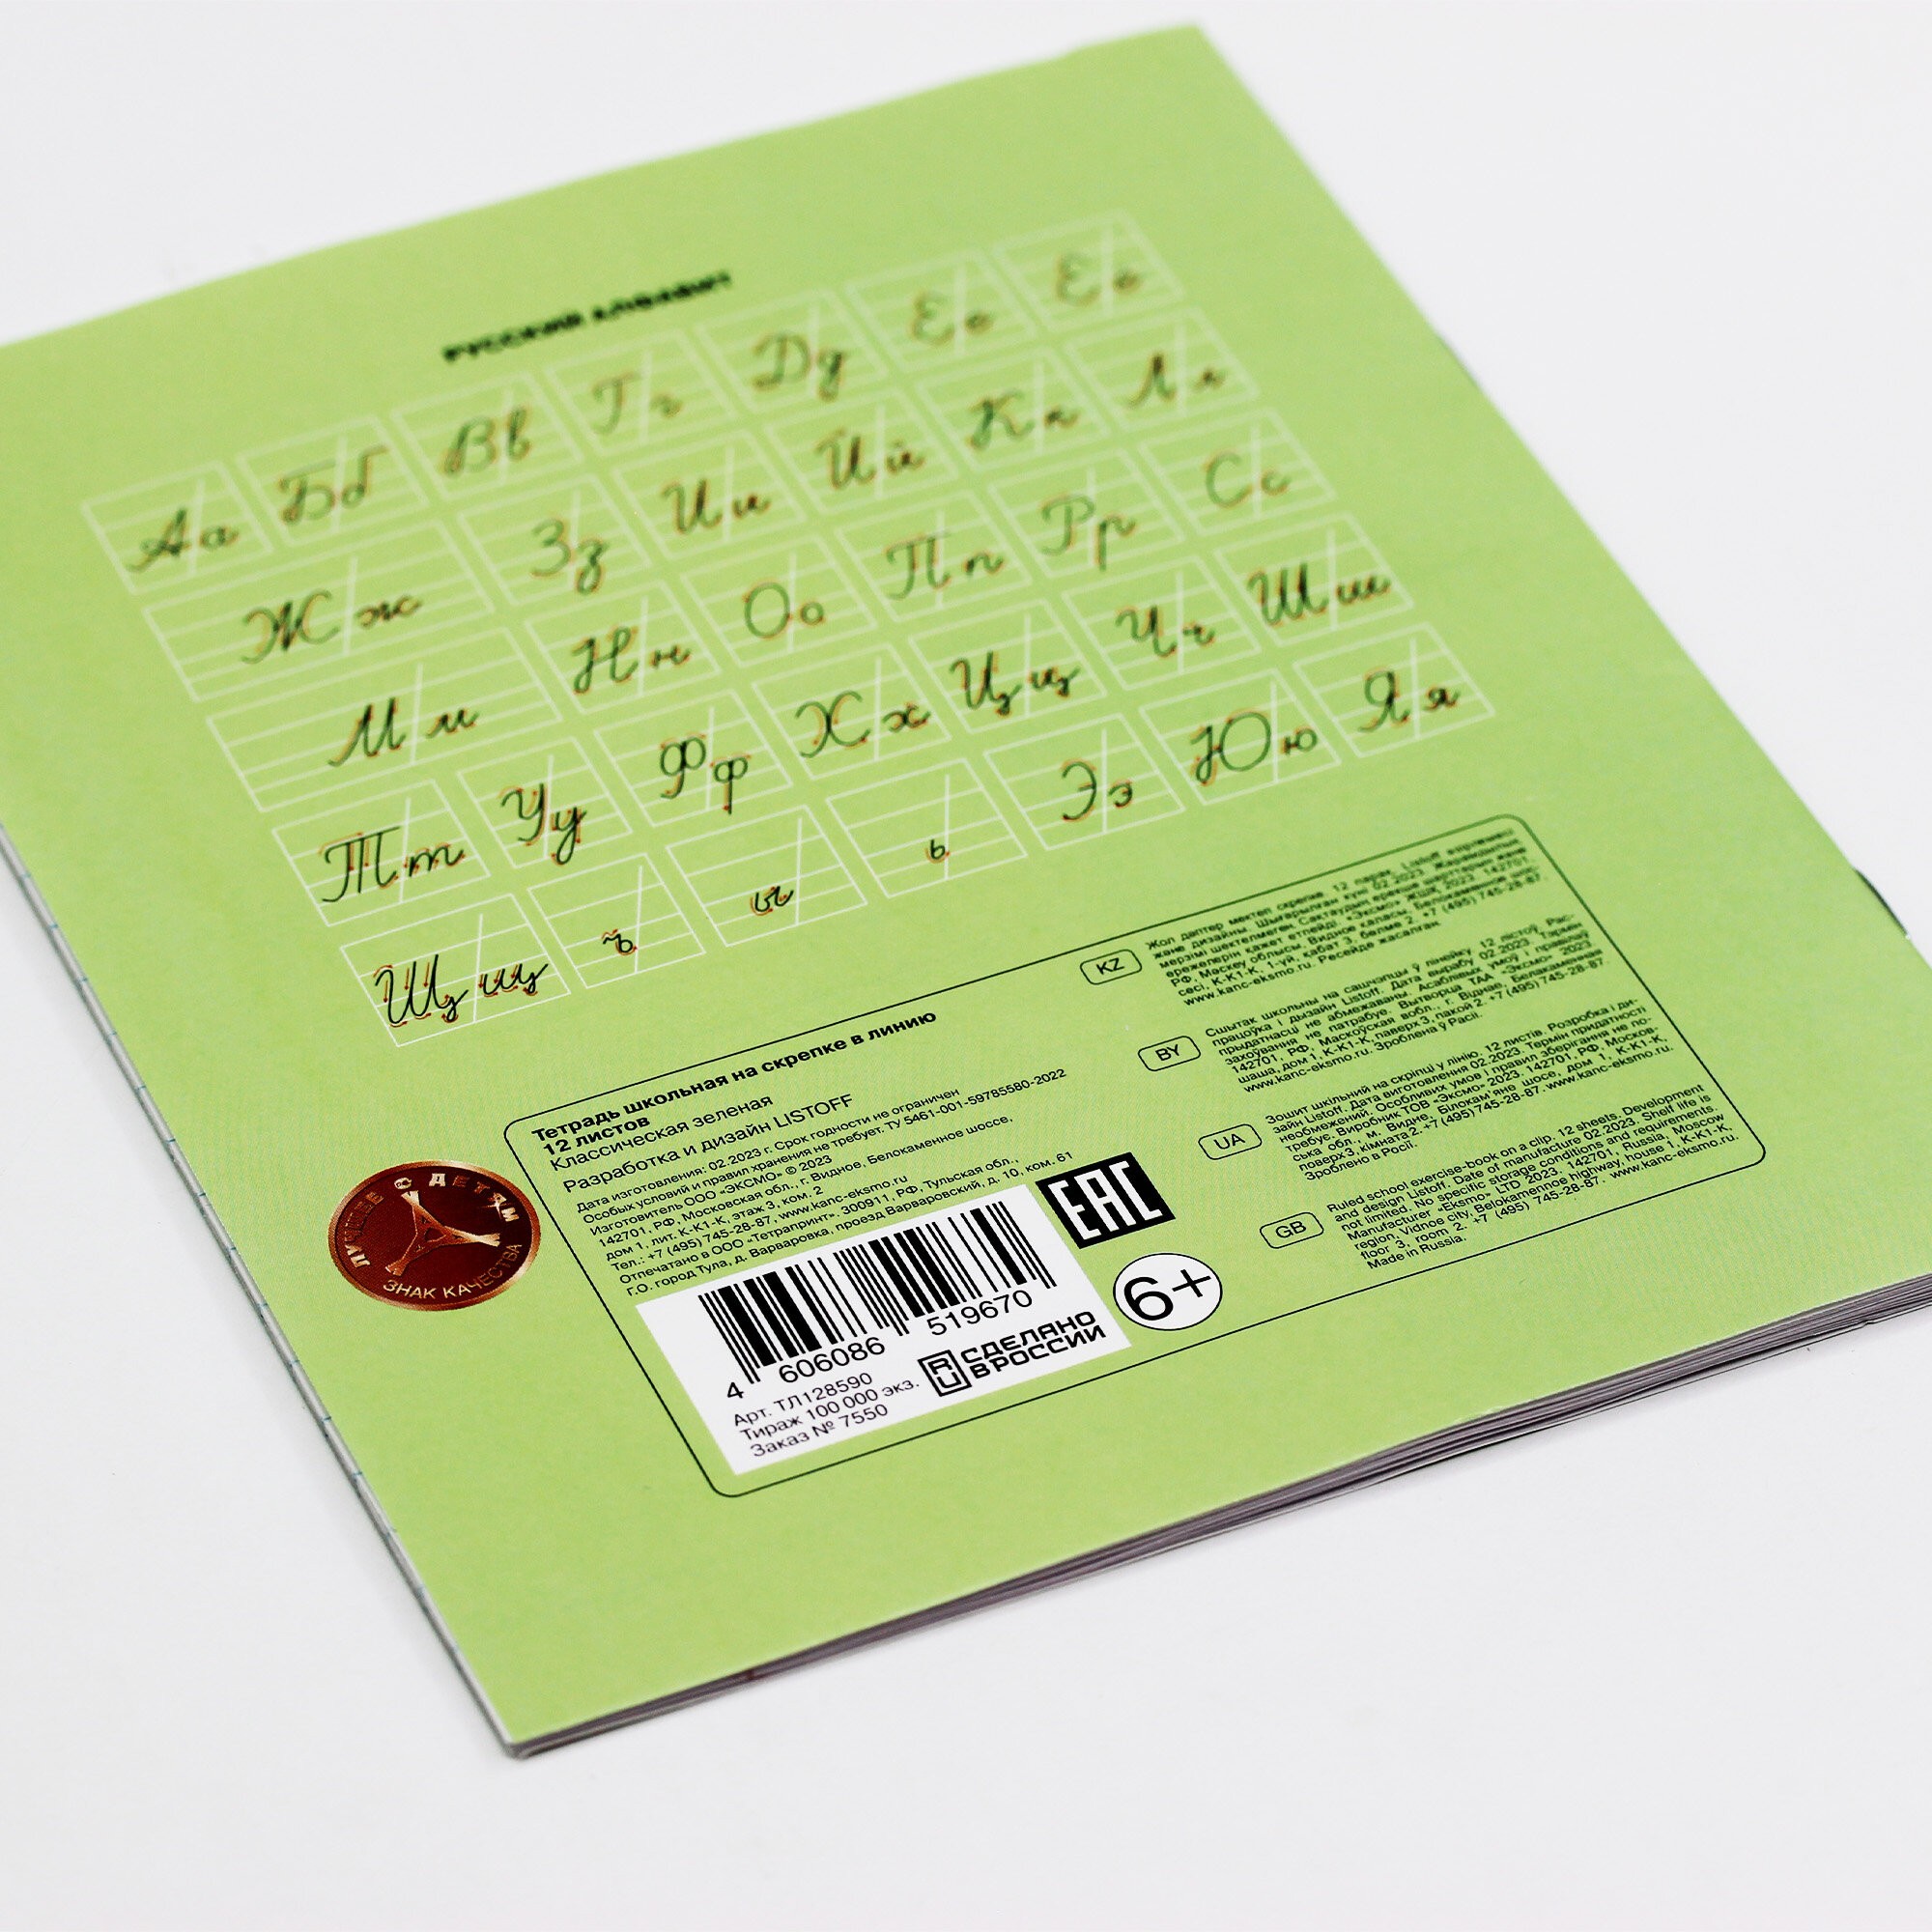 РУССКИЙ АЛФАВИТ
Аа Бб Вв Гг Дд Ее Ёё
Жж Зз Ии Йй Кк Лл
Мм Нн Оо Пп Рр Сс
Тт Уу Фф Хх Цц Чч Шш
Щщ ъ ы ь Ээ Юю Яя
ЛУЧШЕЕ ДЕТЯМ
ЗНАК КАЧЕСТВА
Тетрадь школьная на скрепке в линию
12 листов
Классическая зеленая
Разработка и дизайн LISTOFF
Дата изготовления: 02.2023 г. Срок годности не ограничен
Особых условий и правил хранения не требует. ТУ 5461-001-59785580-2022
Изготовитель ООО «ЭКСМО» © 2023
142701, РФ, Московская обл., г. Видное, Белокаменное шоссе,
дом 1, лит. К-К1-К, этаж 3, ком. 2
Тел.: +7 (495) 745-28-87, www.kanc-eksmo.ru
Отпечатано в ООО «Тетрапринт». 300911, РФ, Тульская обл.,
Г.О. город Тула, д. Варваровка, проезд Варваровский, д. 10, ком. 61
4 606086 519670
Арт. ТЛ128590
Тираж 100 000 экз.
Заказ № 7550
СДЕЛАНО
В РОССИИ
EAC
6+
KZ
Жол дәптер мектеп скрепке. 12 парақ. Listoff әзірлемесі
және дизайны. Шығарылған күні 02.2023. Жарамдылық
мерзімі шектелмеген. Сақтаудың ерекше шарттарын және
ережелерін қажет етпейді. «Эксмо» ЖШҚ, 2023. 142701,
РФ, Мәскеу облысы, Видное қаласы, Белокаменное шос-
сесі, К-К1-К, 1-үй, қабат 3, бөлме 2. +7 (495) 745-28-87.
www.kanc-eksmo.ru. Ресейде жасалған.
BY
Сшытак школьны на сашчэпцы ў лінейку. 12 лістоў. Рас-
працоўка і дызайн Listoff. Дата вырабу 02.2023. Тэрмін
прыдатнасці не абмежаваны. Асаблівых умоў і правілаў
захоўвання не патрабуе. Вытворца ТАА «Эксмо» 2023
142701, РФ, Маскоўская вобл., г. Віднае, Белакаменная
шаша, дом 1, К-К1-К, паверх 3, пакой 2. +7 (495) 745-28-87.
www.kanc-eksmo.ru. Зроблена ў Расіі.
UA
Зошит шкільний на скріпці у лінію. 12 листів. Розробка і ди-
зайн Listoff. Дата виготовлення 02.2023. Термін придатності
необмежений. Особливих умов і правил зберігання не по-
требує. Виробник ТОВ «Эксмо» 2023. 142701, РФ, Москов-
ська обл., м. Видне, Білокам'яне шосе, дом 1, К-К1-К,
поверх 3, кімната 2. +7 (495) 745-28-87. www.kanc-eksmo.ru.
Зроблено в Росії.
GB
Ruled school exercise-book on a clip. 12 sheets. Development
and design Listoff. Date of manufacture 02.2023. Shelf life is
not limited. No specific storage conditions and requirements.
Manufacturer «Eksmo» LTD 2023. 142701, Russia, Moscow
region, Vidnoe city, Belokamennoe highway, house 1, K-K1-K,
floor 3, room 2. +7 (495) 745-28-87. www.kanc-eksmo.ru.
Made in Russia.